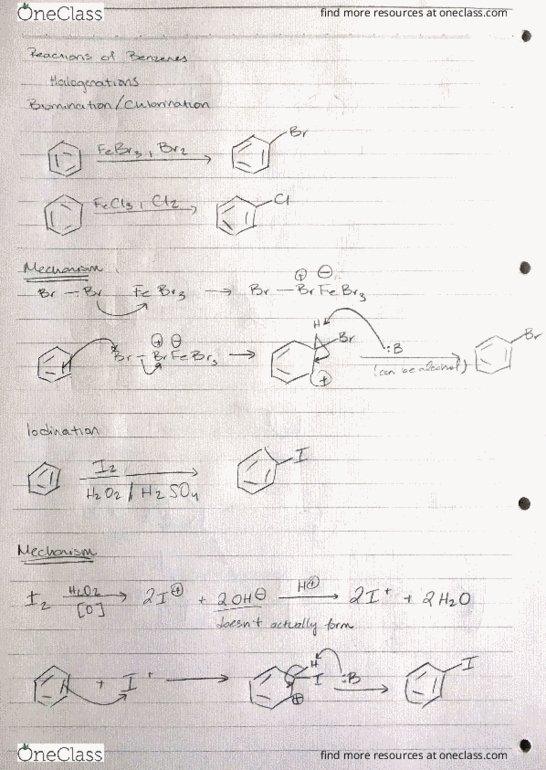 OneClass find more resources at oneclass.com
Reactions of Benzenes
Halogenations
Bromination/Chlorination
FeBr3, Br2 Br
FeCl3, Cl2 Cl
Mechanism
Br - Br FeBr3 → Br - Br⊕ ⊖FeBr3
Br - Br⊕ ⊖FeBr3 → H Br ⊕ :B (can be alcohol) Br
Iodination
I2 I
H2O2 / H2SO4
Mechanism
I2 H2O2 [O] → 2I⊕ + 2OH⊖ H⊕ → 2I+ + 2H2O
doesn't actually form
+ I+ → H I ⊕ :B → I
OneClass find more resources at oneclass.com